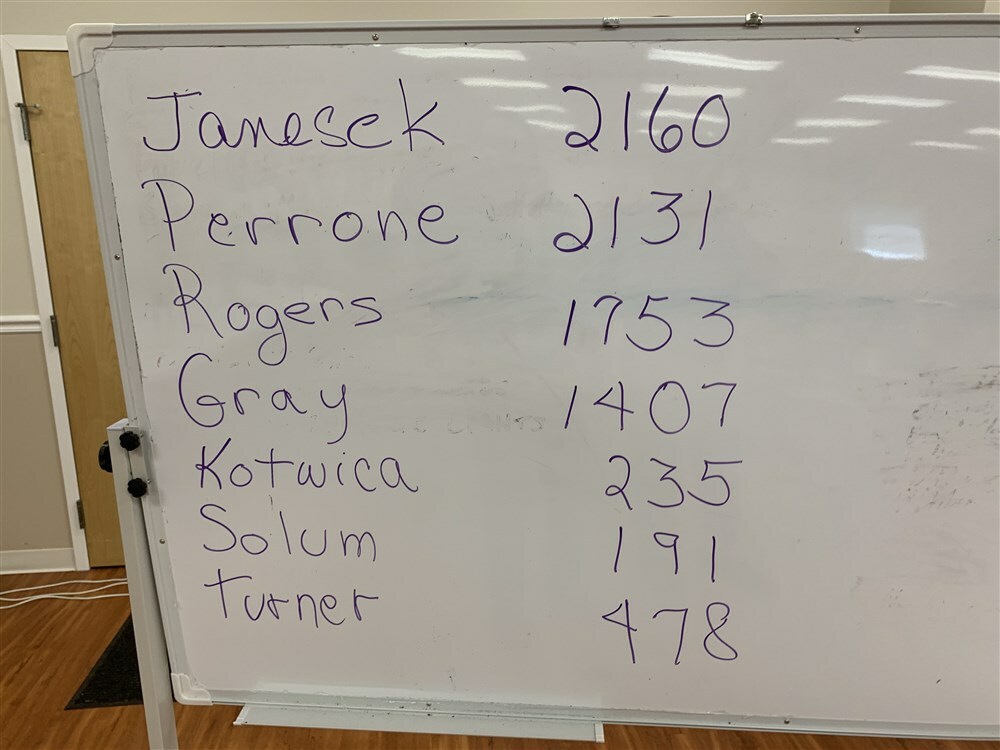 Janesek 2160
Perrone 2131
Rogers 1753
Gray 1407
Kotwica 235
Solum 191
Turner 478